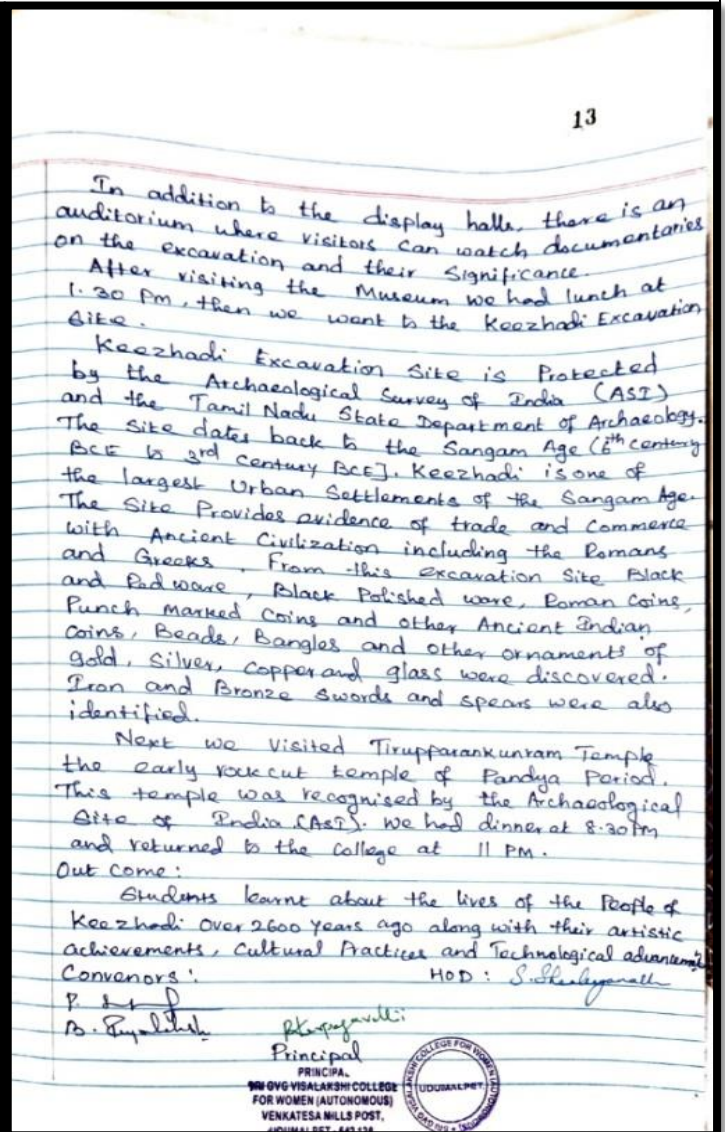 13
In addition to the display halls, there is an
auditorium where visitors can watch documentaries
on the excavation and their Significance.
After visiting the Museum we had lunch at
1.30 Pm, then we went to the Keezhadi Excavation
Site.
Keezhadi Excavation Site is Protected
by the Archaeological Survey of India (ASI)
and the Tamil Nadu State Department of Archaeology.
The Site dates back to the Sangam Age (6th century
BCE to 3rd Century BCE]. Keezhadi is one of
the largest Urban Settlements of the Sangam Age.
The Site Provides evidence of trade and Commerce
with Ancient Civilization including the Romans
and Greeks. From this excavation Site Black
and Red ware, Black Polished ware, Roman Coins,
Punch Marked Coins and other Ancient Indian
Coins, Beads, Bangles and other ornaments of
gold, Silver, Copper and glass were discovered.
Iron and Bronze Swords and spears were also
identified.
Next we visited Tirupparankunram Temple
the early rock cut temple of Pandya Period.
This temple was recognised by the Archaeological
Site of India (ASI). We had dinner at 8.30 Pm
and returned to the College at 11 PM.
Out come:
Students learnt about the lives of the People of
Keezhadi over 2600 years ago along with their artistic
achievements, Cultural Practices and Technological
Convenors: HOD:
P.
B.
Principal
PRINCIPAL
SRI GVG VISALAKSHI COLLEGE
FOR WOMEN (AUTONOMOUS)
VENKATESA MILLS POST,
UDUMALPET - 642 128
UDUMALPET